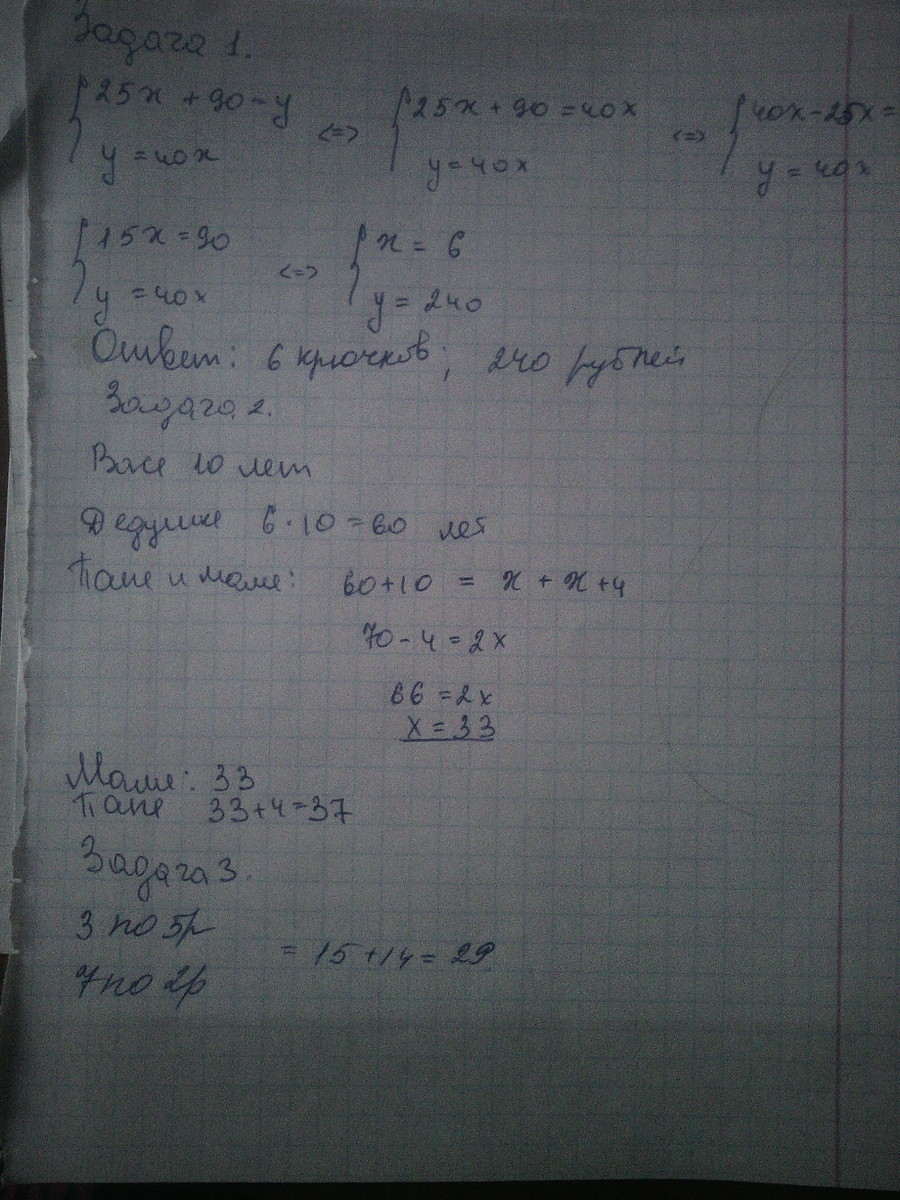 Задача 1.
{ 25x + 90 = y <=> { 25x + 90 = 40x <=> { 40x - 25x =
y = 40x y = 40x y = 40x
{ 15x = 90 <=> { x = 6
y = 40x y = 240
Ответ: 6 крючков; 240 рублей
Задача 2.
Васе 10 лет
Дедушке 6 · 10 = 60 лет
Папе и маме: 60+10 = x + x + 4
70 - 4 = 2x
66 = 2x
x = 33
Маме: 33
Папе 33+4=37
Задача 3.
3 по 5р
= 15 + 14 = 29
7 по 2р